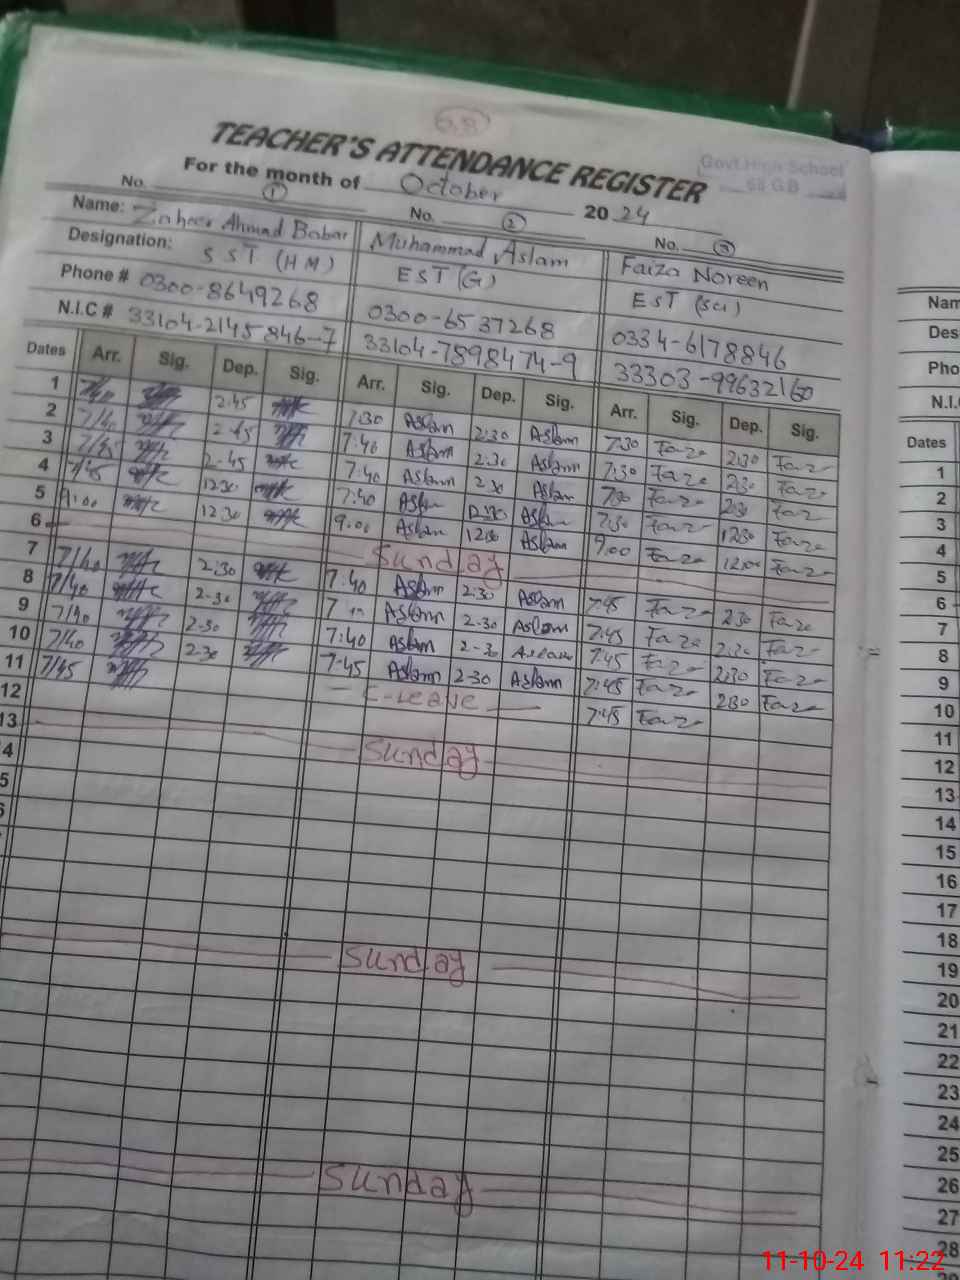 68
TEACHER'S ATTENDANCE REGISTER
Govt. High School
68 G.B
For the month of October 2024
No. 1 No. 2 No. 3
Name: Zaheer Ahmad Babar Muhammad Aslam Faiza Noreen
Designation: SST (HM) EST (G) EST (Sci)
Phone # 0300-8649268 0300-6537268 0334-6178846
N.I.C # 33104-2145846-7 33104-7898474-9 33303-9963216
Dates Arr. Sig. Dep. Sig. Arr. Sig. Dep. Sig. Arr. Sig. Dep. Sig.
1 7/40 2:45 7:30 Aslam 2:30 Aslam 7:30 Faiza 2:30 Faiza
2 7/40 2-45 7:40 Aslam 2:30 Aslam 7:30 Faiza 2:30 Faiza
3 7/45 2-45 7:40 Aslam 2 30 Aslam 7:30 Faiza 2:30 Faiza
4 7/45 12:30 7:40 Aslam 12:30 Aslam 7:30 Faiza 12:30 Faiza
5 9:00 12:30 9:00 Aslam 12:30 Aslam 9:00 Faiza 12:00 Faiza
6 Sunday
7 7/40 2:30 7:40 Aslam 2:30 Aslam 7:45 Faiza 2:30 Faiza
8 7/40 2-30 7 Aslam 2-30 Aslam 7:45 Faiza 2:30 Faiza
9 7/40 2:30 7:40 Aslam 2-30 Aslam 7:45 Faiza 2:30 Faiza
10 7/40 2:30 7:45 Aslam 2-30 Aslam 7:45 Faiza 2:30 Faiza
11 7/45 C-Leave 7:45 Faiza
12
13 Sunday
4
5
Sunday
Sunday
Nam
Des
Pho
N.I.
Dates
1
2
3
4
5
6
7
8
9
10
11
12
13
14
15
16
17
18
19
20
21
22
23
24
25
26
27
28
11-10-24 11:22